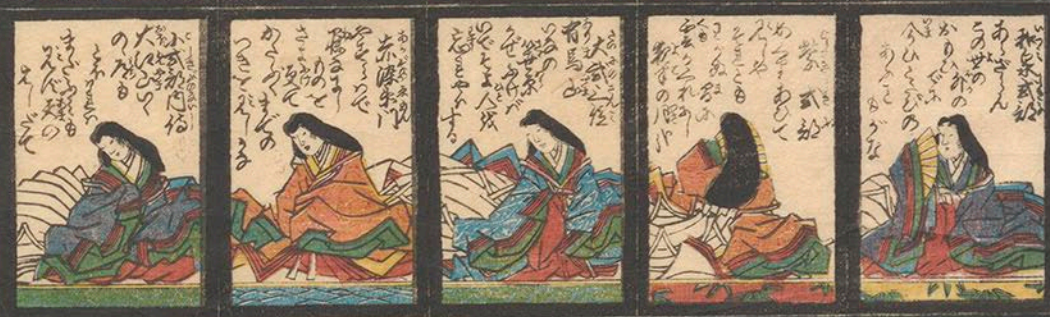 和泉式部
あらざらん
この世の
ほかの
おもひ出に
今ひとたびの
紫式部
めぐりあひて
見しや
それとも
わかぬ間に
雲がくれにし
夜半の月かな
大弐三位
有馬山
いなの
笹原
かぜふけば
いでそよ人を
忘れやはする
赤染衛門
やすらはで
ものを
さよ
ふけて
かたぶくまでの
つきを見しかな
小式部内侍
大江山いく
のゝ道の
とほければ
まだふみも
見ず天の
はしだて